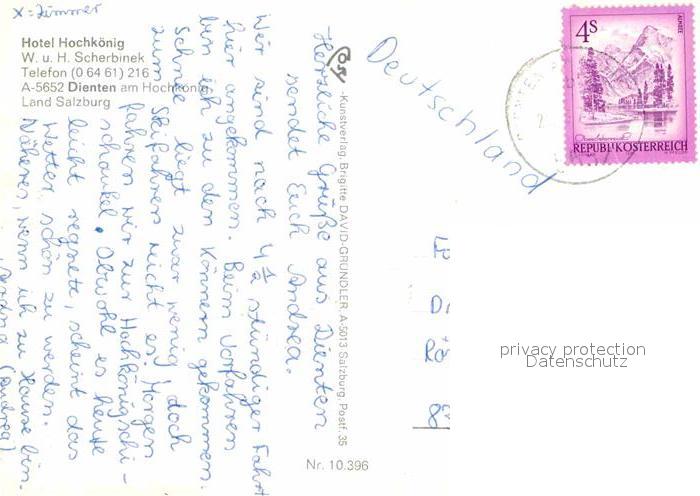 X=Zimmer
Hotel Hochkönig
W. u. H. Scherbinek
Telefon (0 64 61) 216
A-5652 Dienten am Hochkönig
Land Salzburg
Herzliche Grüße aus Dienten
sendet Euch Andrea.
Wir sind nach 4 1/2 stündiger Fahrt
hier angekommen. Beim Vorfahren
bin ich zu den Könnern gekommen.
Schnee liegt zwar wenig, doch
zum Skifahren reicht es. Morgen
fahren wir zur Hochkönigschi-
schaukel. Obwohl es heute
leicht regnete, scheint das
Wetter schön zu werden.
Näheres, wenn ich zu Hause bin.
(Andrea)
Kunstverlag, Brigitte DAVID-GRÜNDLER A-5013 Salzburg, Postf. 35
Nr. 10.396
Deutschland
4S
ALMSEE
REPUBLIK ÖSTERREICH
privacy protection
Datenschutz